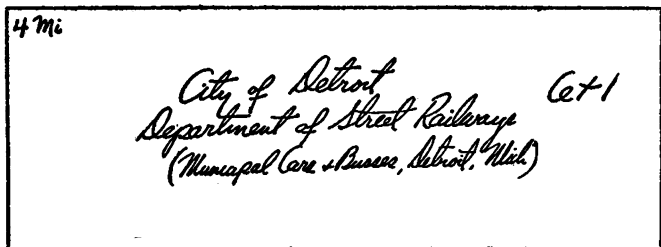 4 Mi
City of Detroit
6+1
Department of Street Railways
(Municapal Cars + Busses, Detroit, Mich)